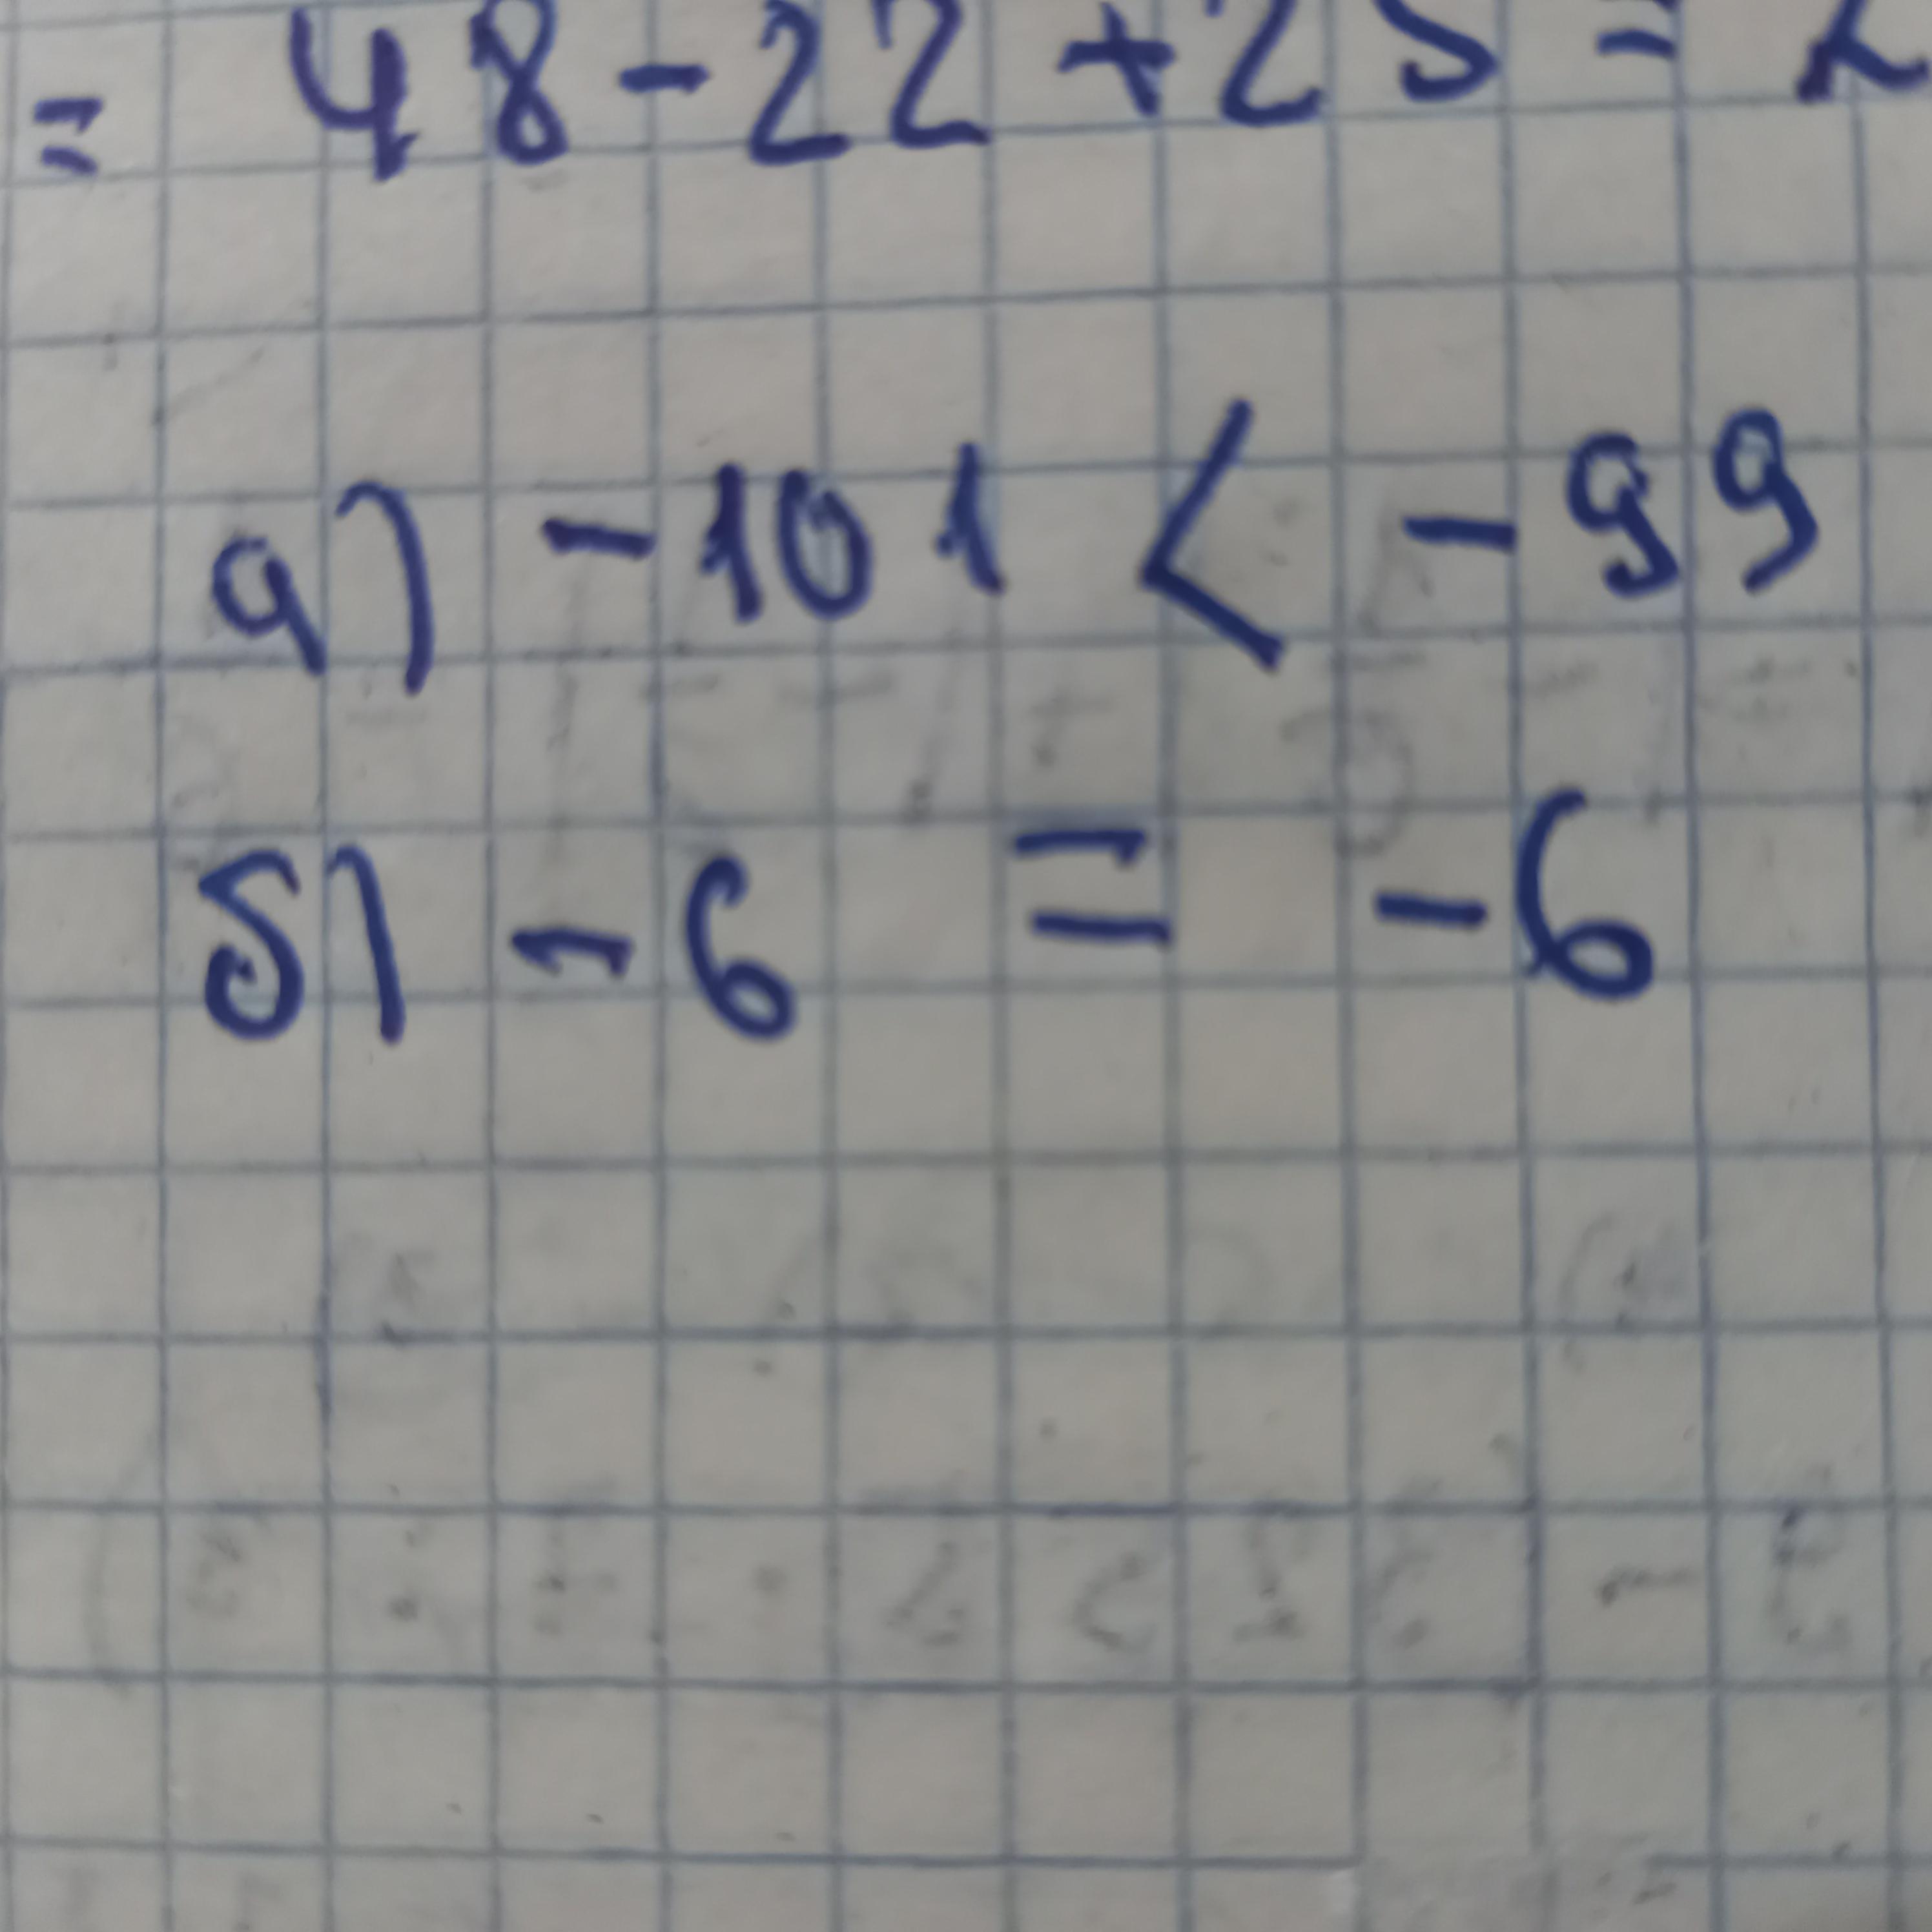 = 48-22+25=
а) -101 < -99
б) -6 = -6